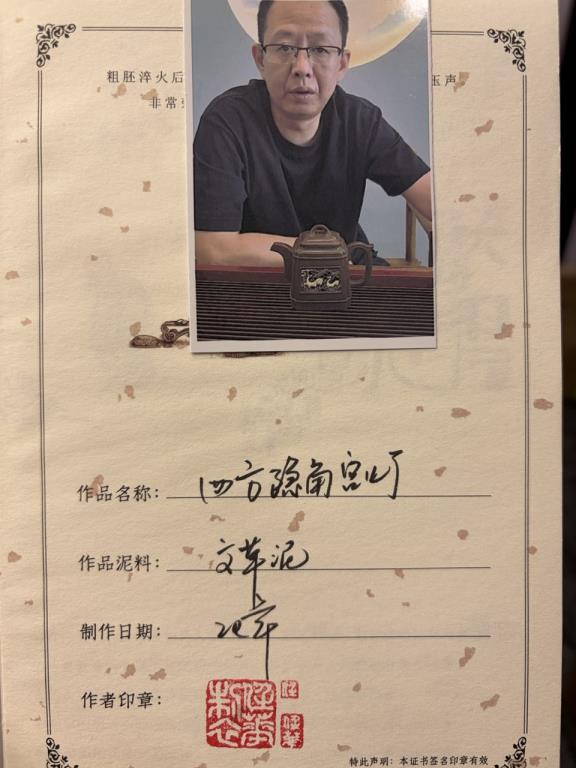 粗胚淬火后 玉声
非常
作品名称：四方隐角宫灯
作品泥料：文革泥
制作日期：
作者印章：
特此声明：本证书签名印章有效